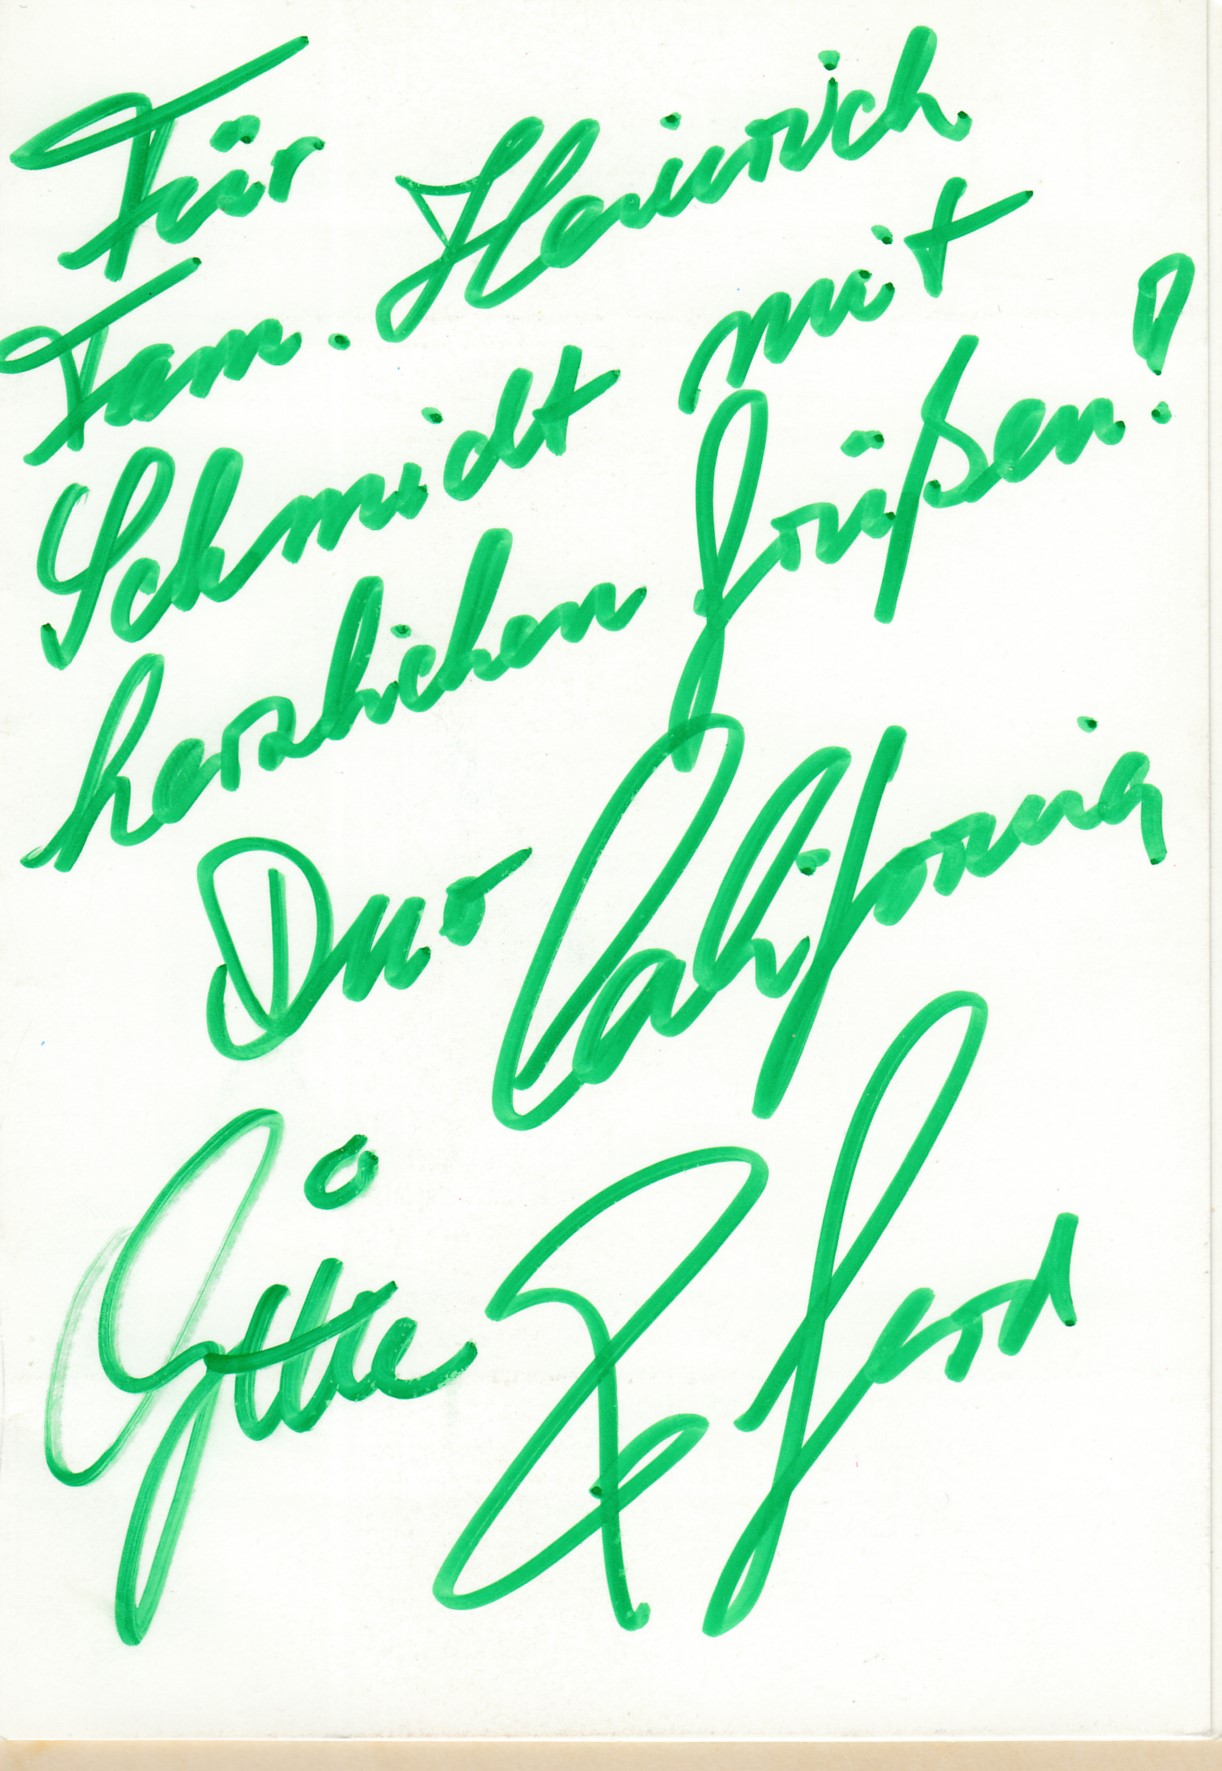 Für
Fam. Heinrich
Schmidt mit
herzlichen Grüßen!
Duo California
Gitte & Gerd